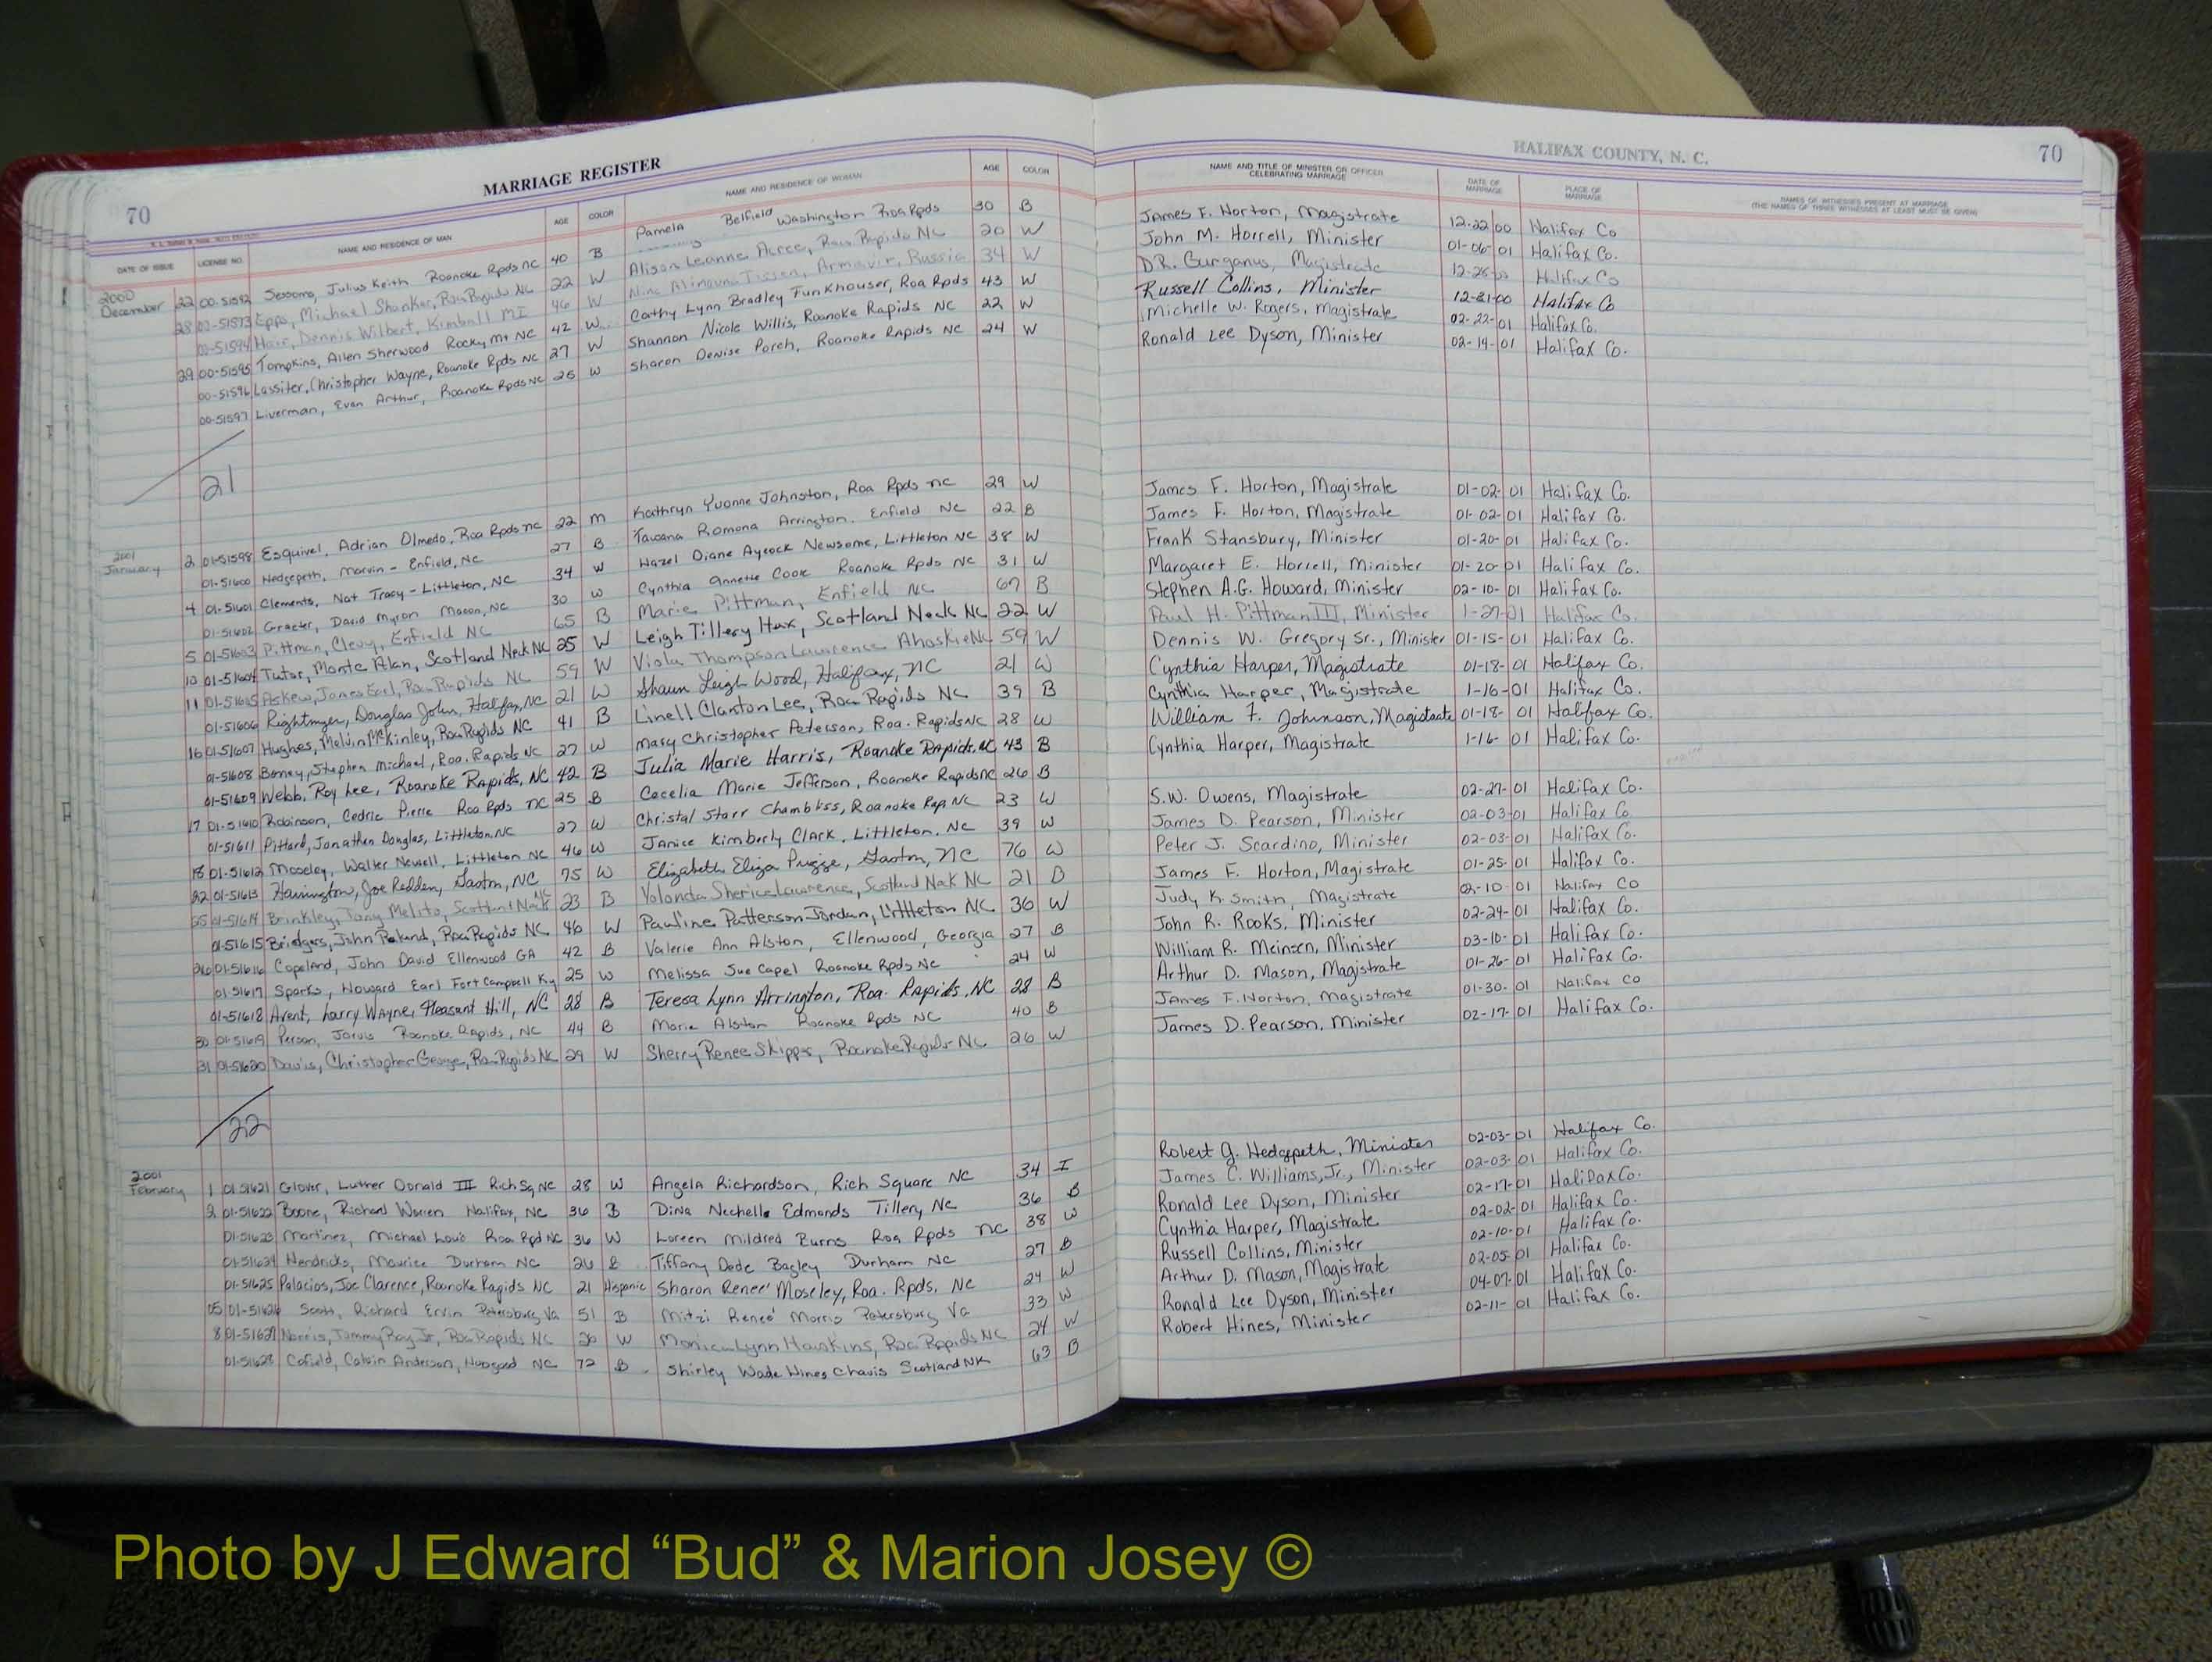 MARRIAGE REGISTER
HALIFAX COUNTY, N. C.
70
70
DATE OF ISSUE LICENSE NO. NAME AND RESIDENCE OF MAN AGE COLOR NAME AND RESIDENCE OF WOMAN AGE COLOR NAME AND TITLE OF MINISTER OR OFFICER CELEBRATING MARRIAGE DATE OF MARRIAGE PLACE OF MARRIAGE NAMES OF WITNESSES PRESENT AT MARRIAGE (THE NAMES OF THREE WITNESSES AT LEAST MUST BE GIVEN)
2000 December 22 00-51592 Sessoms, Julius Keith Roanoke Rpds NC 40 B Pamela Belfield Washington Roa Rpds 30 B James F. Horton, Magistrate 12-22-00 Halifax Co
28 00-51593 Epps, Michael Shonker, Roa Rapids NC 22 W Alison Leanne Acree, Roa Rapids NC 20 W John M. Horrell, Minister 01-06-01 Halifax Co.
00-51594 Hair, Dennis Wilbert, Kimball MI 46 W Nina Armavir, Russia 34 W D.R. Gurganus, Magistrate 12-28-00 Halifax Co
29 00-51595 Tompkins, Allen Sherwood Rocky Mt NC 42 W Cathy Lynn Bradley Funkhouser, Roa Rpds 43 W Russell Collins, Minister 12-31-00 Halifax Co
00-51596 Lassiter, Christopher Wayne, Roanoke Rpds NC 27 W Shannon Nicole Willis, Roanoke Rapids NC 22 W Michelle W. Rogers, Magistrate 02-22-01 Halifax Co.
00-51597 Liverman, Evan Arthur, Roanoke Rpds NC 25 W Sharon Denise Porch, Roanoke Rapids NC 24 W Ronald Lee Dyson, Minister 02-14-01 Halifax Co.
21
2001 January 2 01-51598 Esquivel, Adrian Olmedo, Roa Rpds nc 22 M Kathryn Yvonne Johnston, Roa Rpds nc 29 W James F. Horton, Magistrate 01-02-01 Halifax Co.
01-51600 Hedgepeth, Marvin - Enfield, NC 27 B Tawana Romona Arrington. Enfield NC 22 B James F. Horton, Magistrate 01-02-01 Halifax Co.
4 01-51601 Clements, Nat Tracy - Littleton, NC 34 W Hazel Diane Aycock Newsome, Littleton NC 38 W Frank Stansbury, Minister 01-20-01 Halifax Co.
01-51602 Graeter, David Myron Macon, NC 30 W Cynthia Annette Cook Roanoke Rpds NC 31 W Margaret E. Horrell, Minister 01-20-01 Halifax Co.
5 01-51603 Pittman, Cleavy, Enfield NC 65 B Marie Pittman, Enfield NC 67 B Stephen A.G. Howard, Minister 02-10-01 Halifax Co.
10 01-51604 Tutor, Monte Alan, Scotland Neck NC 25 W Leigh Tillery Hux, Scotland Neck NC 22 W Paul H. Pittman III, Minister 1-27-01 Halifax Co.
11 01-51605 Askew, James Earl, Roa Rapids NC 59 W Viola Thompson Lawrence Ahoskie NC 59 W Dennis W. Gregory Sr., Minister 01-15-01 Halifax Co.
01-51606 Rightmyer, Douglas John, Halifax, NC 21 W Shaun Leigh Wood, Halifax, NC 21 W Cynthia Harper, Magistrate 01-18-01 Halifax Co.
16 01-51607 Hughes, Melvin McKinley, Roa Rapids NC 41 B Linell Clanton Lee, Roa Rapids NC 39 B Cynthia Harper, Magistrate 1-16-01 Halifax Co.
01-51608 Boney, Stephen Michael, Roa. Rapids NC 27 W Mary Christopher Peterson, Roa. Rapids NC 28 W William F. Johnson, Magistrate 01-18-01 Halifax Co.
01-51609 Webb, Roy Lee, Roanoke Rapids, NC 42 B Julia Marie Harris, Roanoke Rapids, NC 43 B Cynthia Harper, Magistrate 1-16-01 Halifax Co.
17 01-51610 Robinson, Cedric Pierre Roa Rpds NC 25 B Cecelia Marie Jefferson, Roanoke Rapids NC 26 B
01-51611 Pittard, Jonathan Douglas, Littleton, NC 27 W Christal Starr Chambliss, Roanoke Rap NC 23 W S.W. Owens, Magistrate 02-27-01 Halifax Co.
18 01-51612 Moseley, Walter Newell, Littleton NC 46 W Janice Kimberly Clark, Littleton, NC 39 W James D. Pearson, Minister 02-03-01 Halifax Co
22 01-51613 Harrington, Joe Redden, Gaston, NC 75 W Elizabeth Eliza Pugge, Gaston, NC 76 W Peter J. Scardino, Minister 02-03-01 Halifax Co.
25 01-51614 Brinkley, Tony Melito, Scotland Neck NC 23 B Yolanda Sherice Lawrence, Scotland Neck NC 21 B James F. Horton, Magistrate 01-25-01 Halifax Co.
01-51615 Bridgers, John Roland, Roa Rapids NC 46 W Pauline Patterson Jordan, Littleton NC 36 W Judy K Smith, Magistrate 02-10-01 Halifax Co
26 01-51616 Copeland, John David Ellenwood GA 42 B Valerie Ann Alston, Ellenwood, Georgia 27 B John R. Rooks, Minister 02-24-01 Halifax Co.
01-51617 Sparks, Howard Earl Fort Campbell Ky 25 W Melissa Sue Capel Roanoke Rpds NC 24 W William R. Meinsen, Minister 03-10-01 Halifax Co.
01-51618 Avent, Larry Wayne, Pleasant Hill, NC 28 B Teresa Lynn Arrington, Roa. Rapids, NC 28 B Arthur D. Mason, Magistrate 01-26-01 Halifax Co.
30 01-51619 Person, Jarvis Roanoke Rapids, NC 44 B Marie Alston Roanoke Rpds NC 40 B James F. Horton, Magistrate 01-30-01 Halifax Co
31 01-51620 Davis, Christopher George, Roa Rapids NC 29 W Sherry Renee Skipper, Roanoke Rapids NC 26 W James D. Pearson, Minister 02-17-01 Halifax Co.
22
2001 February 1 01-51621 Glover, Luther Donald III Rich Sq NC 28 W Angela Richardson, Rich Square NC 34 I Robert G. Hedgepeth, Minister 02-03-01 Halifax Co.
2 01-51622 Boone, Richard Warren Halifax, NC 36 B Dina Nechelle Edmonds Tillery, NC 36 B James C. Williams, Jr., Minister 02-03-01 Halifax Co.
01-51623 Martinez, Michael Louis Roa Rpd NC 36 W Loreen Mildred Burns Roa Rpds NC 38 W Ronald Lee Dyson, Minister 02-17-01 Halifax Co.
01-51624 Hendricks, Maurice Durham NC 26 B Tiffany Dede Bagley Durham NC 27 B Cynthia Harper, Magistrate 02-02-01 Halifax Co.
01-51625 Palacios, Joe Clarence, Roanoke Rapids NC 21 Hispanic Sharon Renee' Moseley, Roa. Rpds, NC 24 W Russell Collins, Minister 02-10-01 Halifax Co.
05 01-51626 Scott, Richard Ervin Petersburg, Va 51 B Mitzi Reneé Morris Petersburg Va 33 W Arthur D. Mason, Magistrate 02-05-01 Halifax Co.
8 01-51627 Norris, Jommy Ray Jr, Roa Rapids NC 20 W Monica Lynn Hawkins, Roa Rapids NC 24 W Ronald Lee Dyson, Minister 04-07-01 Halifax Co.
01-51628 Cofield, Calvin Anderson, Hobgood NC 72 B Shirley Wade Hines Chavis Scotland NK 63 B Robert Hines, Minister 02-11-01 Halifax Co.
Photo by J Edward “Bud” & Marion Josey ©